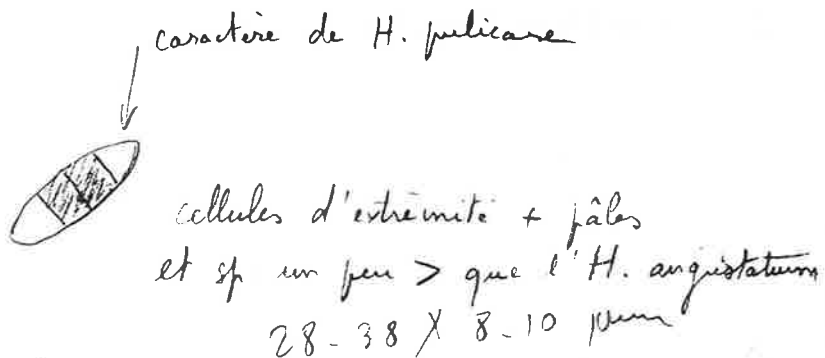 caractère de H. pulicare
cellules d'extrêmité + pâles
et sp un peu > que l'H. angustatum
28-38 X 8-10 µm